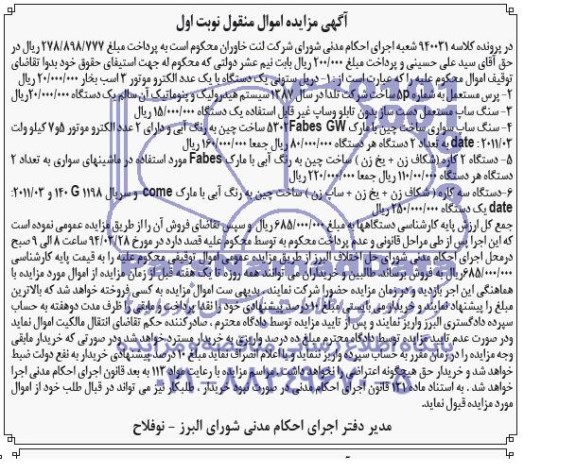 آگهی مزایده اموال منقول نوبت اول
در پرونده کلاسه ۹۴۰۰۳۱ شعبه اجرای احکام مدنی شورای شرکت لنت خاوران محکوم است به پرداخت مبلغ ۲۷۸/۸۹۸/۷۷۷ ریال در
حق آقای سید علی حسینی و پرداخت مبلغ ۲۰۰/۰۰۰ ریال بابت نیم عشر دولتی که محکوم له جهت استیفای حقوق خود بدوا تقاضای
توقیف اموال محکوم علیه را که عبارت است از ۱- دریل ستونی یک دستگاه با یک عدد الکترو موتور ۳ اسب بخار ۲۰/۰۰۰/۰۰۰ ریال
۲- پرس مستعمل به شماره 5p ساخت شرکت تلدا در سال ۱۳۸۷ سیستم هیدرولیک و پنوماتیک آن سالم یک دستگاه ۲۰/۰۰۰/۰۰۰ریال
۳- سنگ ساب مستعمل دست ساز بدون تابلو وساپ غیر قابل استفاده یک دستگاه ۱۵/۰۰۰/۰۰۰ ریال
۴- سنگ ساب سواری ساخت چین با مارک Fabes GW ۵۳۰۲ ساخت چین به رنگ آبی و دارای ۲ عدد الکترو موتور ۵و۷ کیلو وات
date :۲۰۱۱/۰۳ به تعداد ۲ دستگاه هر دستگاه ۸۰/۰۰۰/۰۰۰ ریال جمعا ۱۶۰/۰۰۰/۰۰۰ ریال
۵- دستگاه ۲ کاره (شکاف زن + یخ زن ) ساخت چین به رنگ آبی با مارک Fabes مورد استفاده در ماشینهای سواری به تعداد ۲
دستگاه هر دستگاه ۱۱۰/۰۰۰/۰۰۰ ریال جمعا ۲۲۰/۰۰۰/۰۰۰ ریال
۶-دستگاه سه کاره ( شکاف زن + یخ زن + ساپ زن ) ساخت چین به رنگ آبی با مارک come و سریال ۱۱۹۸ G ۱۴۰ و ۲۰۱۱/۰۳:
date یک دستگاه ۲۵۰/۰۰۰/۰۰۰ ریال
جمع کل ارزش پایه کارشناسی دستگاهها به مبلغ ۶۸۵/۰۰۰/۰۰۰ ریال و سپس تقاضای فروش آن را از طریق مزایده عمومی نموده است
که این اجرا پس از طی مراحل قانونی و عدم پرداخت محکوم به توسط محکوم علیه قصد دارد در مورخ ۹۴/۰۲/۲۸ ساعت ۸ الی ۹ صبح
درمحل اجرای احکام مدنی شورای حل اختلاف البرز از طریق مزایده عمومی اموال توقیفی محکوم علیه را به قیمت پایه کارشناسی
۶۸۵/۰۰۰/۰۰۰ ریال به فروش برساند. طالبین و خریداران می توانند همه روزه تا یک هفته قبل از زمان مزایده از اموال مورد مزایده با
هماهنگی این اجرا بازدید و در زمان مزایده حضورا شرکت نمایند. بدیهی ست اموال مزایده به کسی فروخته خواهد شد که بالاترین
مبلغ را پیشنهاد نمایند و خریدار می بایستی مبلغ ۱۰ درصد پیشنهادی خود را نقدا پرداخت و مابقی را ظرف مدت دوهفته به حساب
سپرده دادگستری البرز واریز نمایند و پس از تایید مزایده توسط دادگاه محترم . صادرکننده حکم تقاضای انتقال مالکیت اموال نماید
ودر صورت عدم تایید مزایده توسط دادگاه محترم مبلغ ده درصد واریزی به خریدار مسترد خواهد شد ودر صورتی که خریدار مابقی
وجه مزایده را در زمان مقرر به حساب سپرده واریز ننماید و یا اعلام انصراف نماید مبلغ ۱۰ درصد پیشنهادی خریدار به نفع دولت ضبط
خواهد شد و خریدار حق هیچگونه اعتراضی را نخواهد داشت. مراسم مزایده با رعایت مواد ۱۱۳ به بعد قانون اجرای احکام مدنی اجرا
خواهد شد . به استناد ماده ۱۳۱ قانون اجرای احکام مدنی در صورت نبود خریدار ، طلبکار نیز می تواند در قبال طلب خود از اموال
مورد مزایده قبول نماید.
مدیر دفتر اجرای احکام مدنی شورای البرز - نوفلاح